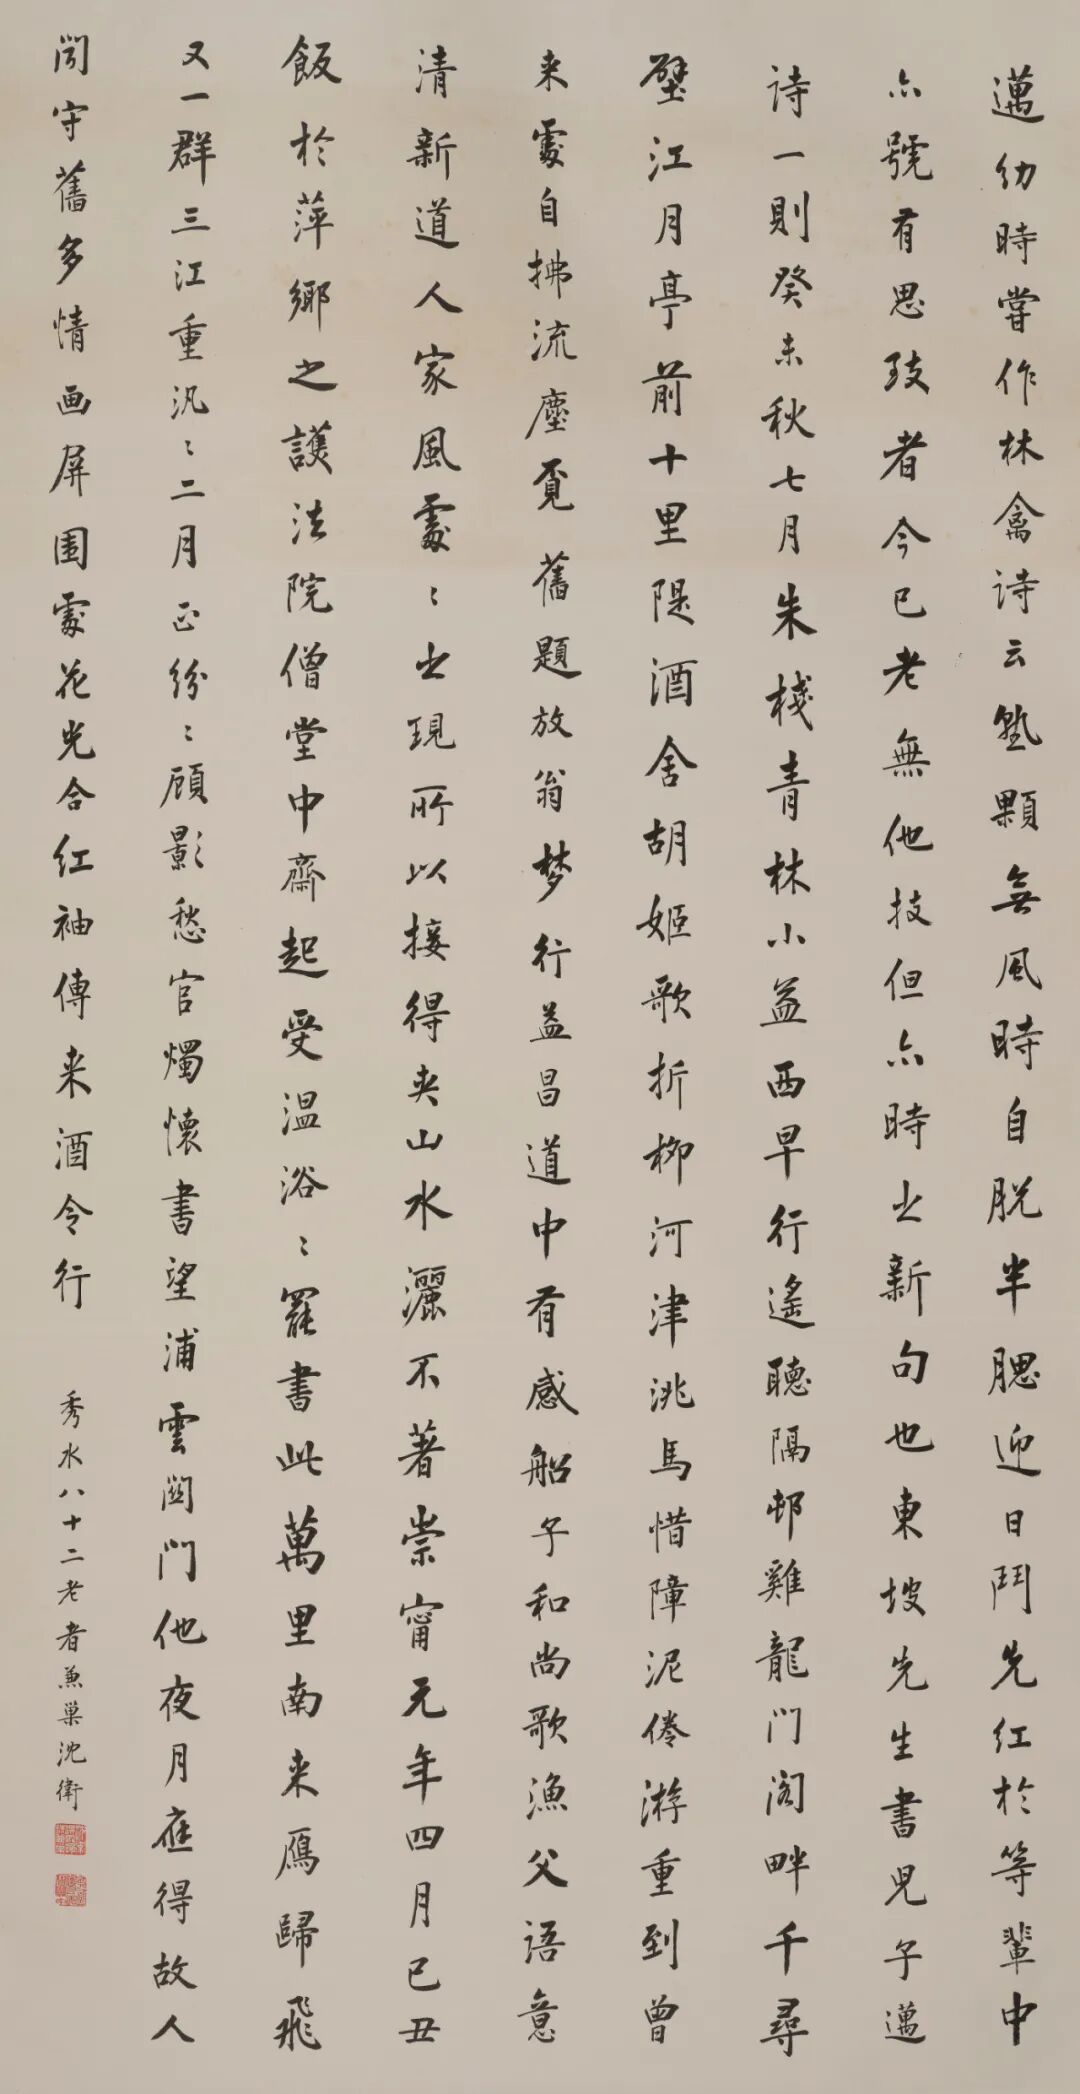 邁幼時嘗作林禽詩云熟顆無風時自脫半腮迎日鬥先紅於等輩中
亦號有思致者今已老無他技但亦時出新句也東坡先生書兒子邁
詩一則癸未秋七月朱棧青林小益西早行遙聽隔邨雞龍門閣畔千尋
壁江月亭前十里隄酒舍胡姬歌折柳河津洮馬惜障泥倦游重到曾
来處自拂流塵覓舊題放翁梦行益昌道中有感船子和尚歌漁父語意
清新道人家風處〻出現所以接得夾山水灑不著崇甯元年四月己丑
飯於萍鄉之護法院僧堂中齋起受温浴〻罷書此萬里南来鴈歸飛
又一群三江重汎〻二月正紛〻顧影愁官燭懷書望浦雲閭門他夜月應得故人
聞守舊多情画屏围處花光合红袖傳来酒令行
秀水八十二老者兼巢沈衛